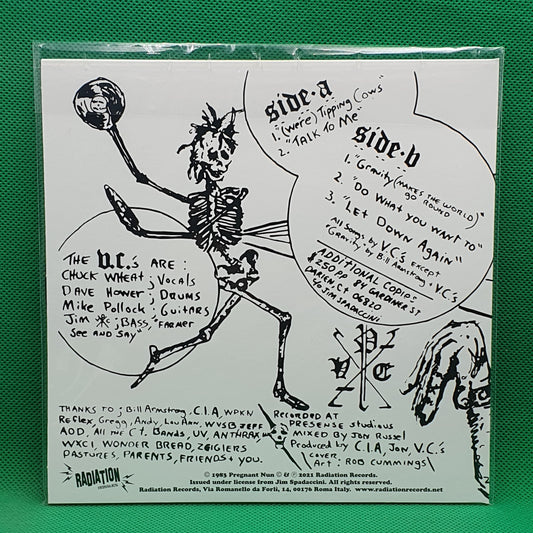 side·a
1. "(we're) Tipping Cows"
2. "TALK TO Me"
side·b
1. "Gravity (MAKES THE WORLD)"
GO ROUND
2. "DO WHAT YOU WANT TO"
3. "LET DOWN AgAin"
All Songs by V.C.'s Except
"Gravity" by Bill Armstrong, V.C.'s
ADDITIONAL COPIES
$2.50 PP 84 GARDINER ST
DARIEN CT 06820
c/o JIM SPADACCINI
THE V.C.'s ARE:
CHUCK WHEAT; VocALS
DAVE HoweR; DRUMS
Mike Pollock; Guitars
Jim; BASS, "FARMER
See AND SAY"
V P C
THANKS TO; Bill Armstrong, C.I.A, WPKN
Reflex, Gregg, Andy, Lou Ann, WVSB JEFF
AOD, All the Ct. Bands, UV, ANTHRAX
WXCI, WONDER BREAD, ZEIGIERS
PASTURES, PARENTS, FRIENDS & YOU.
RECORDED AT
PRESENSE studious
MIXED BY Jon Russel
Produced by C.I.A, Jon, V.C.'s
COVER
Art; ROB CUMMINGS
RADIATION
REISSUES
© 1983 Pregnant Nun © & ℗ 2021 Radiation Records.
Issued under license from Jim Spadaccini. All rights reserved.
Radiation Records, Via Romanello da Forlì, 14, 00176 Roma Italy. www.radiationrecords.net